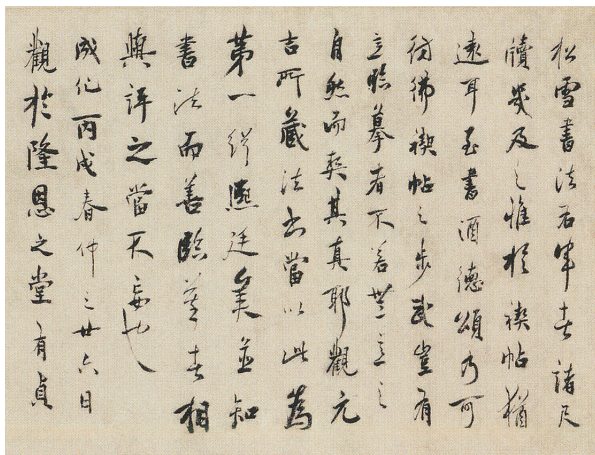 松雪書法右軍者諸尺
牘幾及之惟於禊帖猶
遠耳至書酒德頌乃可
彷彿禊帖之步武豈有
意臨摹者不若無意之
自然而契其真耶觀元
吉所藏法書當以此為
第一緝熙廷美並知
書法而善臨摹者相
與評之當不妄也
成化丙戌春仲之廿六日
觀於隆恩之堂有貞